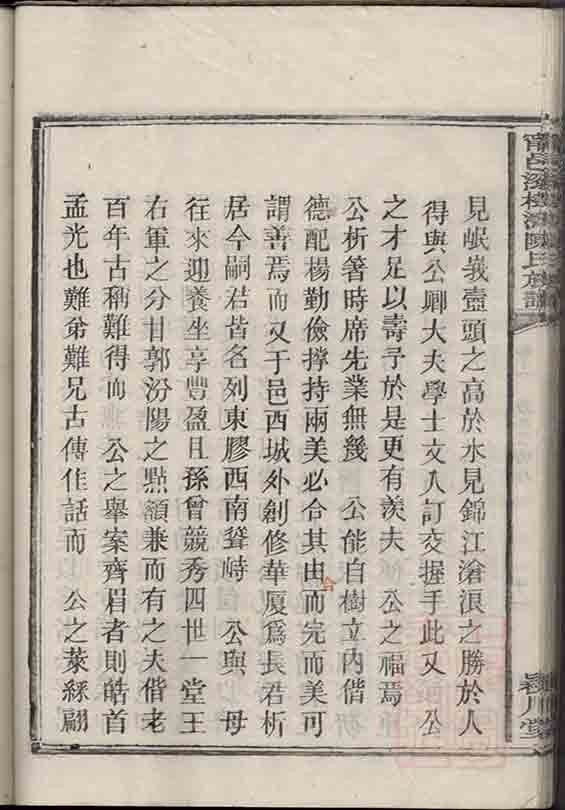 見岷峩壺頭之高於水見錦江滄浪之勝於人
得與公卿大夫學士文人訂交握手此又　公
之才足以壽予於是更有羨夫　公之福焉
公析箸時席先業無幾　公能自樹立內偕
德配楊勤儉撐持兩美必合其由而完而美可
謂善焉而又于邑西城外創修華厦爲長君析
居今嗣君皆名列東膠西南聳峙　公與　母
往來迎養坐享豐盈且孫曾競秀四世一堂王
右軍之分甘郭汾陽之點額兼而有之夫偕老
百年古稱難得而　公之舉案齊眉者則皓首
孟光也難弟難兄古傳佳話而　公之萊綵翩
陳氏族譜
潁川堂